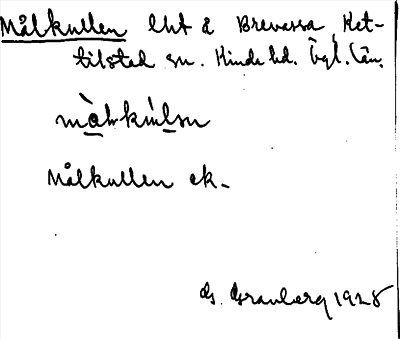 Målkullen lht å Brevassa, Ket-
tilstad sn. Kinda hd. Ögl. län.
Målkullen ek.
G. Granberg 1928